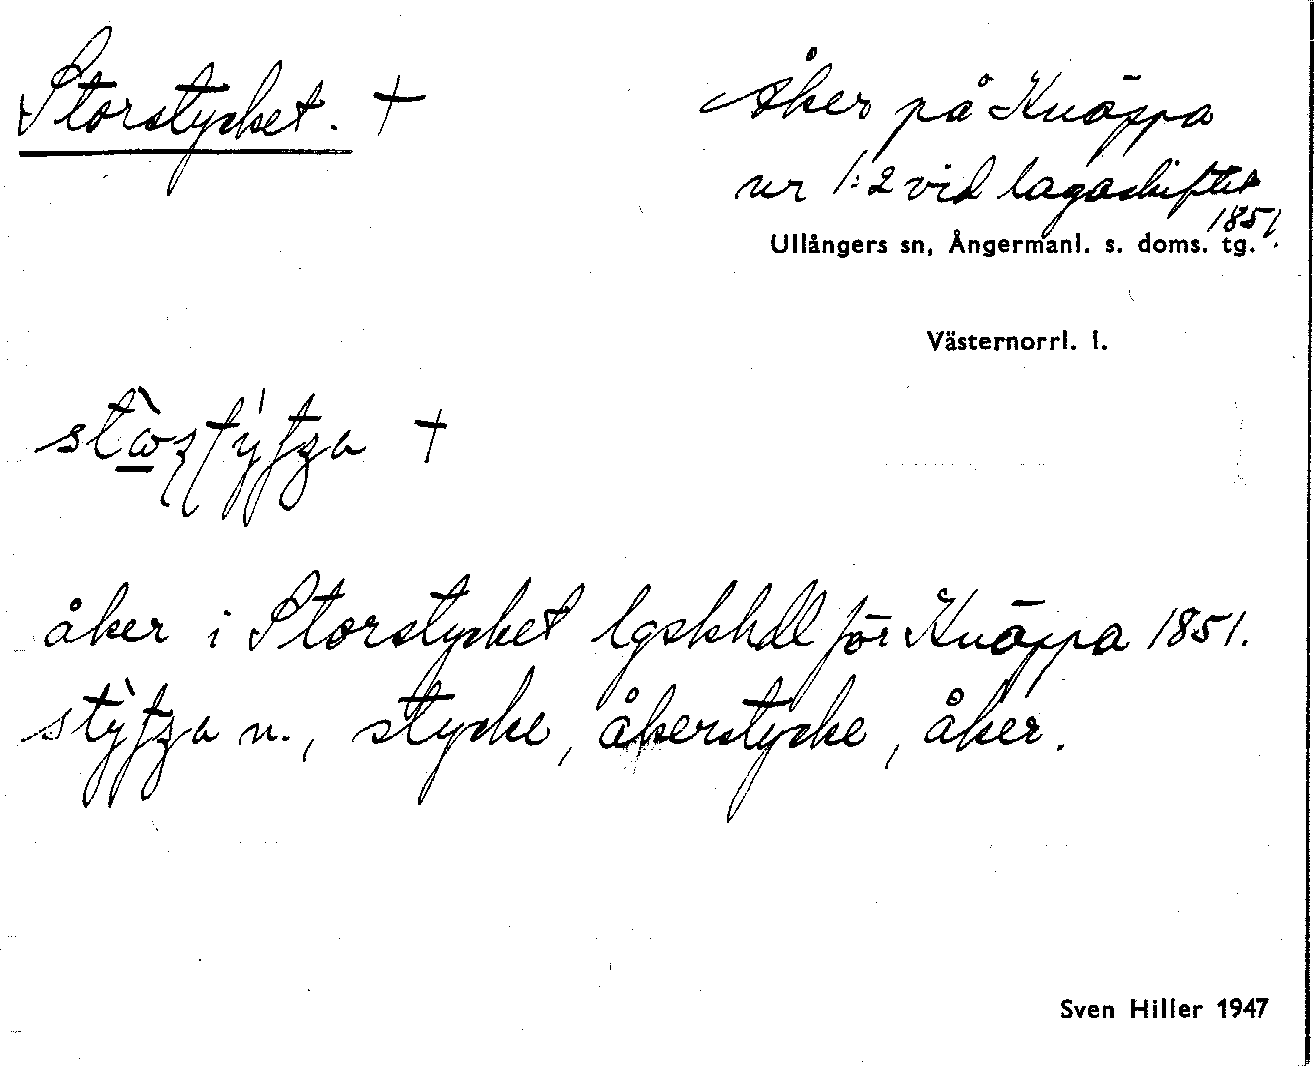 Storstycket. †
Åker på Knäppa
nr 1:2 vid lagaskiftet
1851.
Ullångers sn, Ångermanl. s. doms. tg.
Västernorrl. l.
†
åker i Storstycket lgskhdl för Knäppa 1851.
n., stycke, åkerstycke, åker.
Sven Hiller 1947